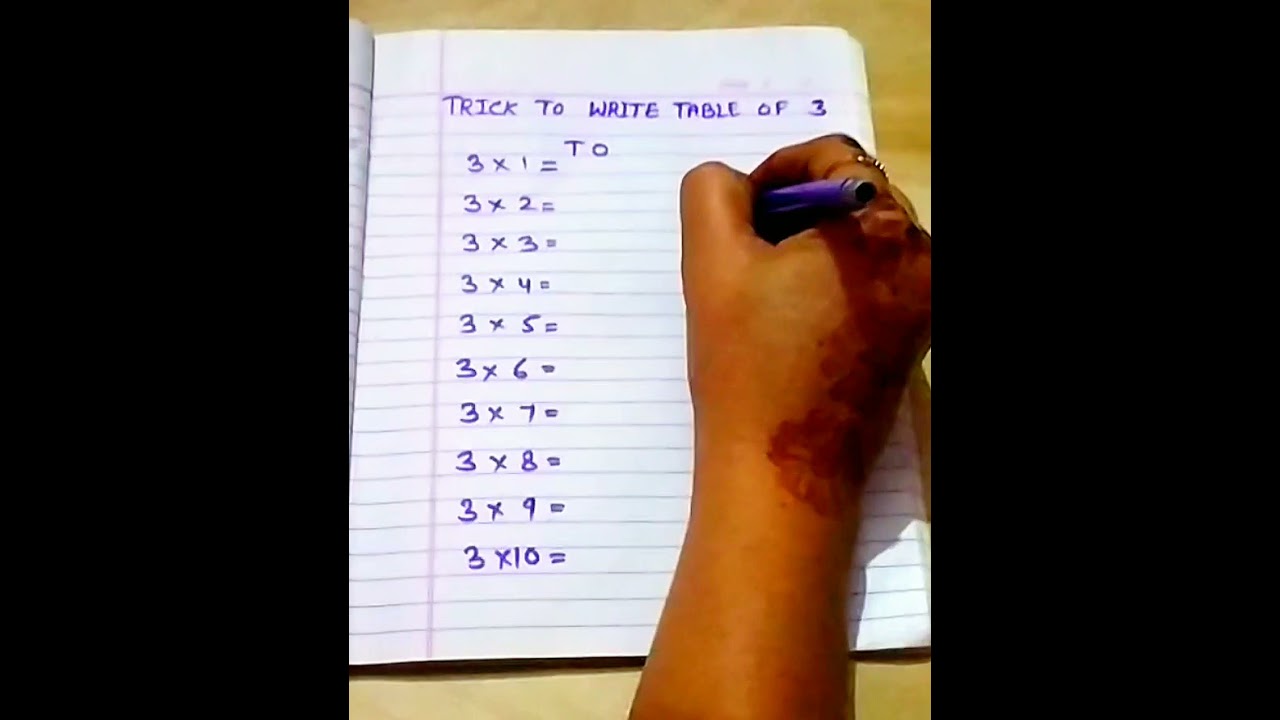 TRICK TO WRITE TABLE OF 3
T O
3 × 1 =
3 × 2 =
3 × 3 =
3 × 4 =
3 × 5 =
3 × 6 =
3 × 7 =
3 × 8 =
3 × 9 =
3 ×10 =